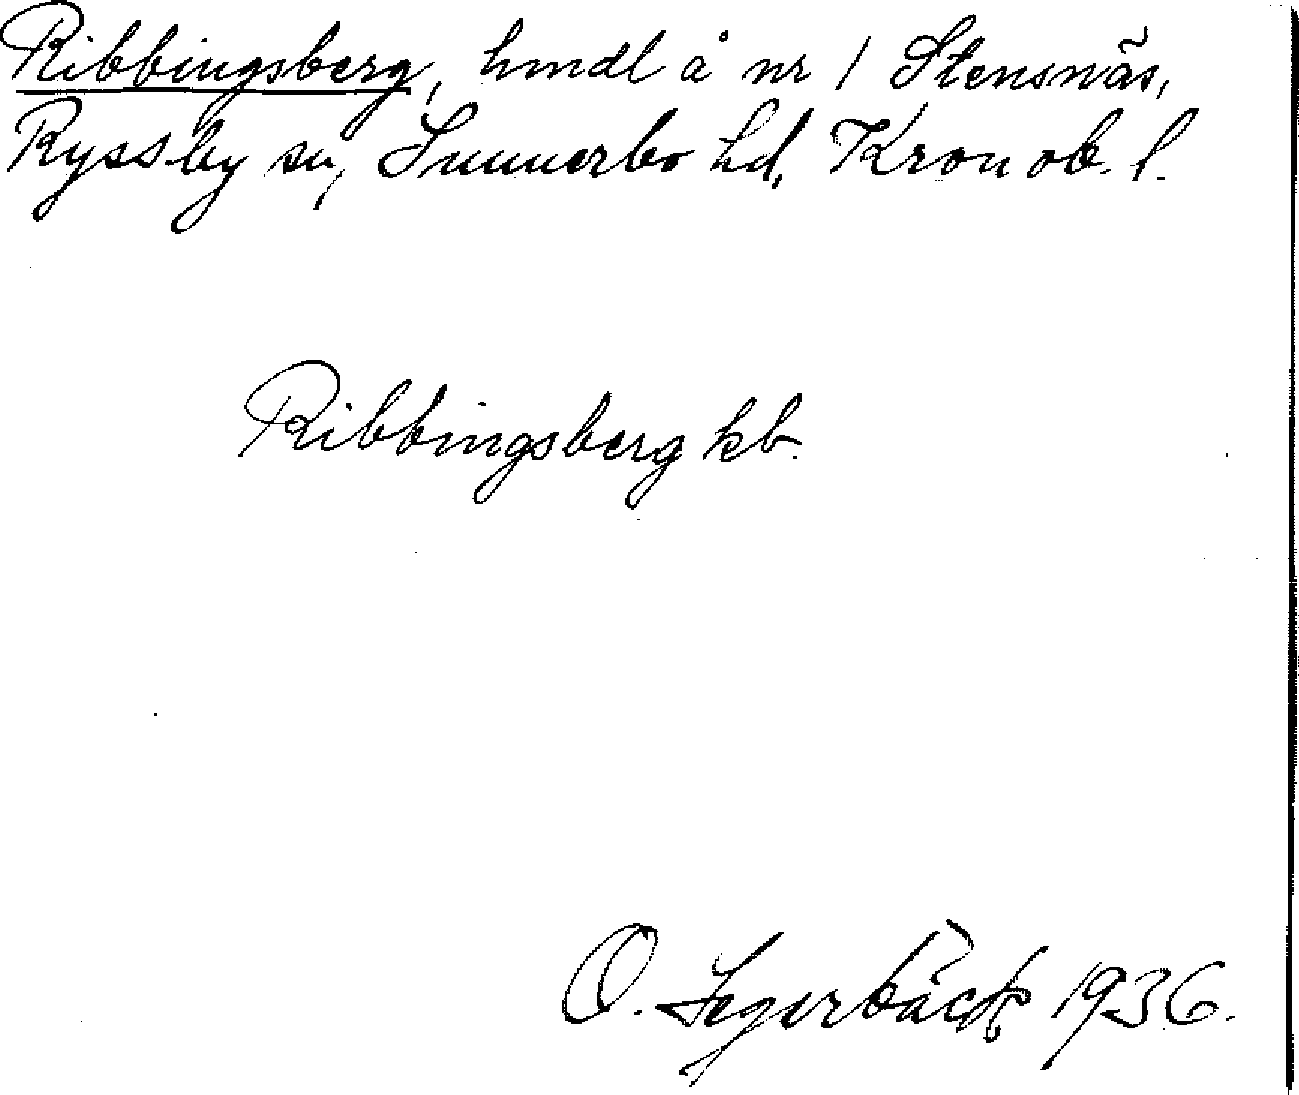 Ribbingsberg, hmdl å nr 1 Stensnäs,
Ryssby sn, Sunnerbo hd, Kronob. l.
Ribbingsberg kb.
O. Segerbäck 1936.